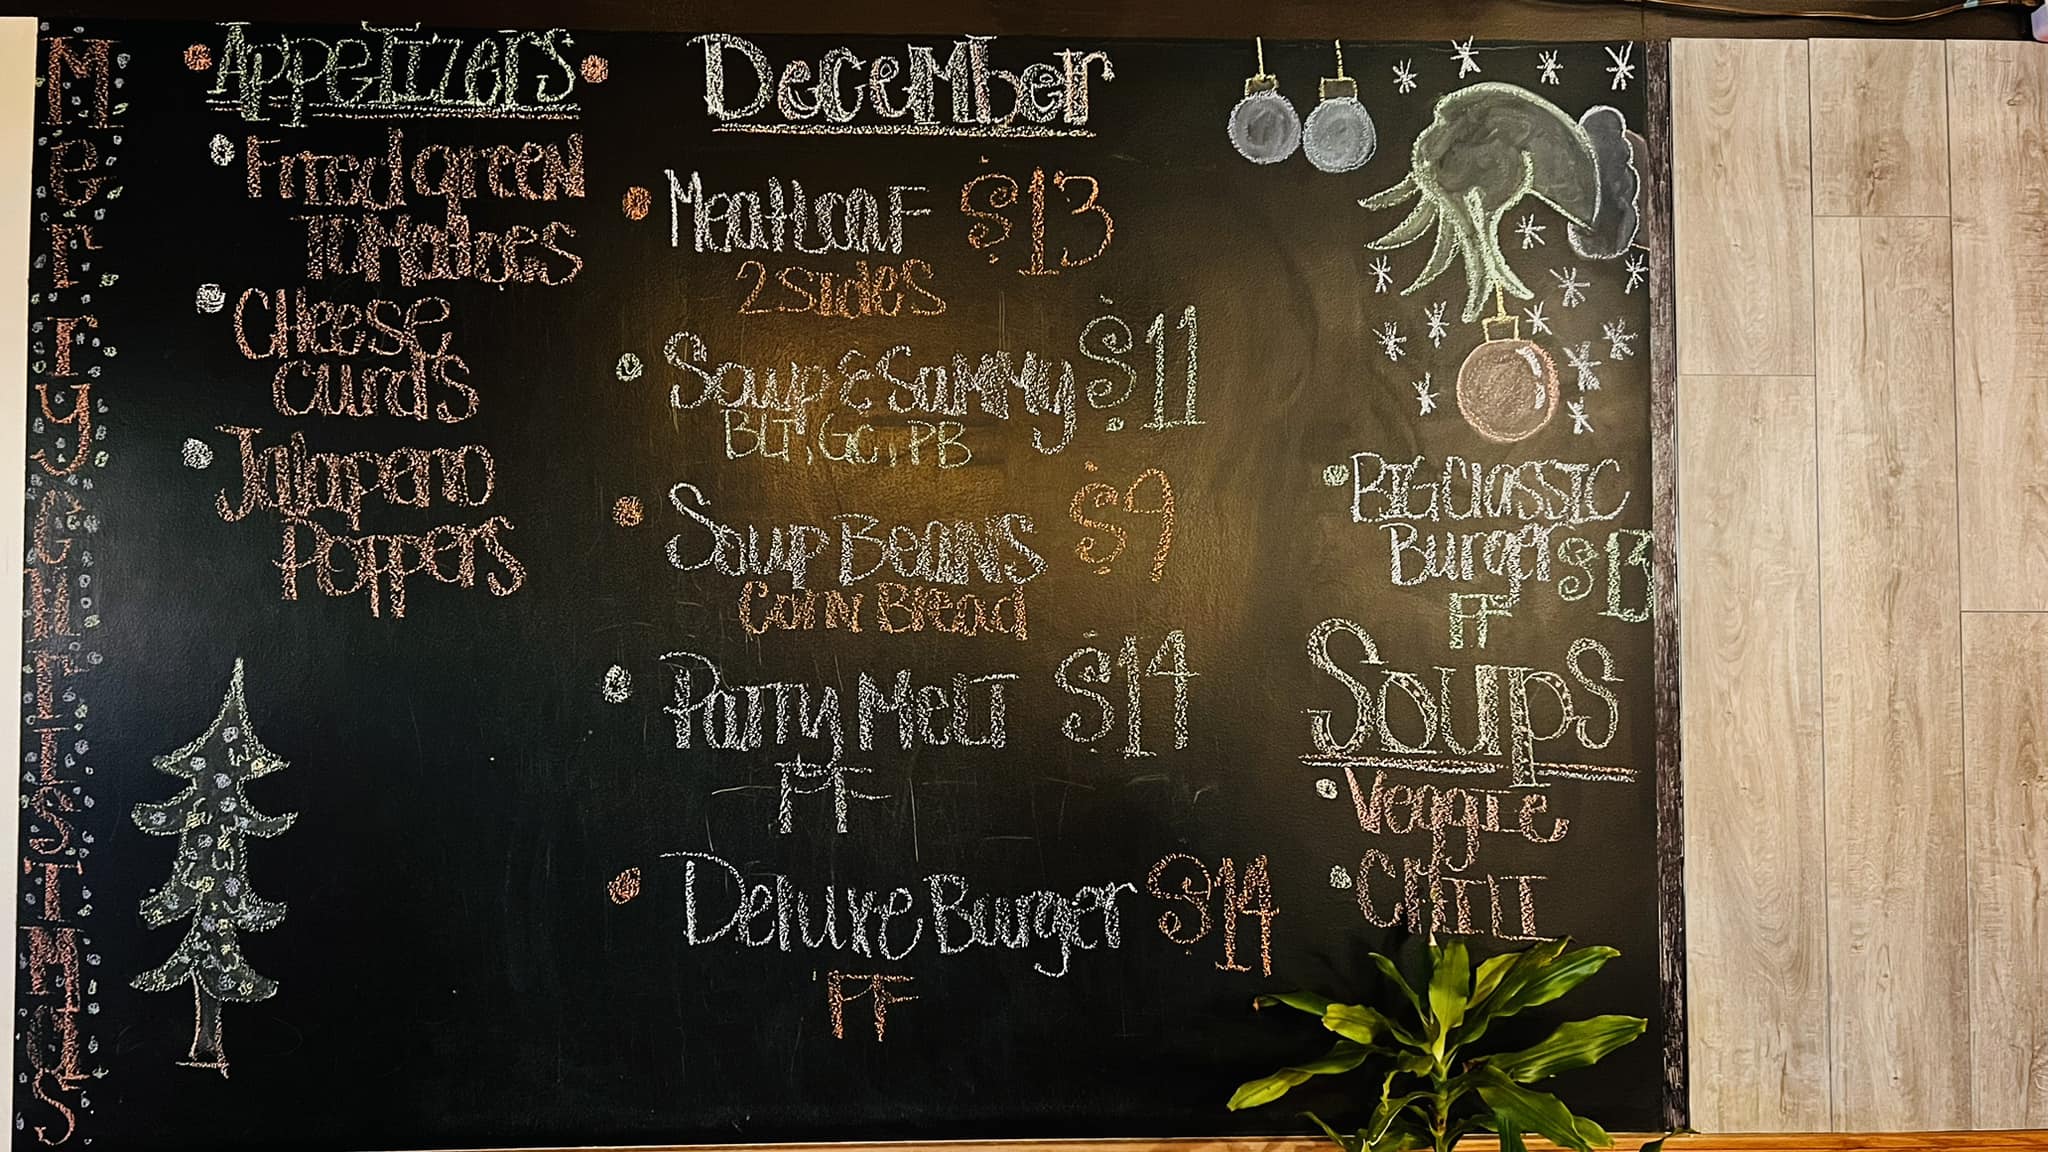 Merry Christmas
Appetizers
Fried green
Tomatoes
Cheese
Curds
Jalapeno
Poppers
December
Meatloaf $13
2 sides
Soup & Sammy $11
BLT, GC, PB
Soup Beans $9
Corn Bread
Patty Melt $14
FF
Deluxe Burger $14
FF
BIG Classic
Burger $13
FF
Soups
Veggie
Chili